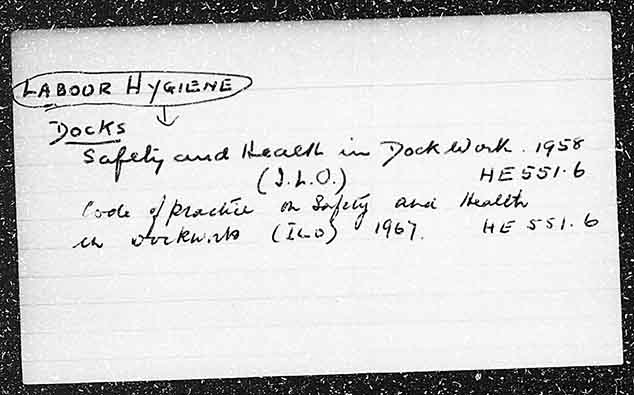 LABOUR HYGIENE
Docks
Safety and Health in Dock Work. 1958
(I.L.O.) HE 551.6
Code of practice on Safety and Health
in Dockwork (ILO) 1967. HE 551.6